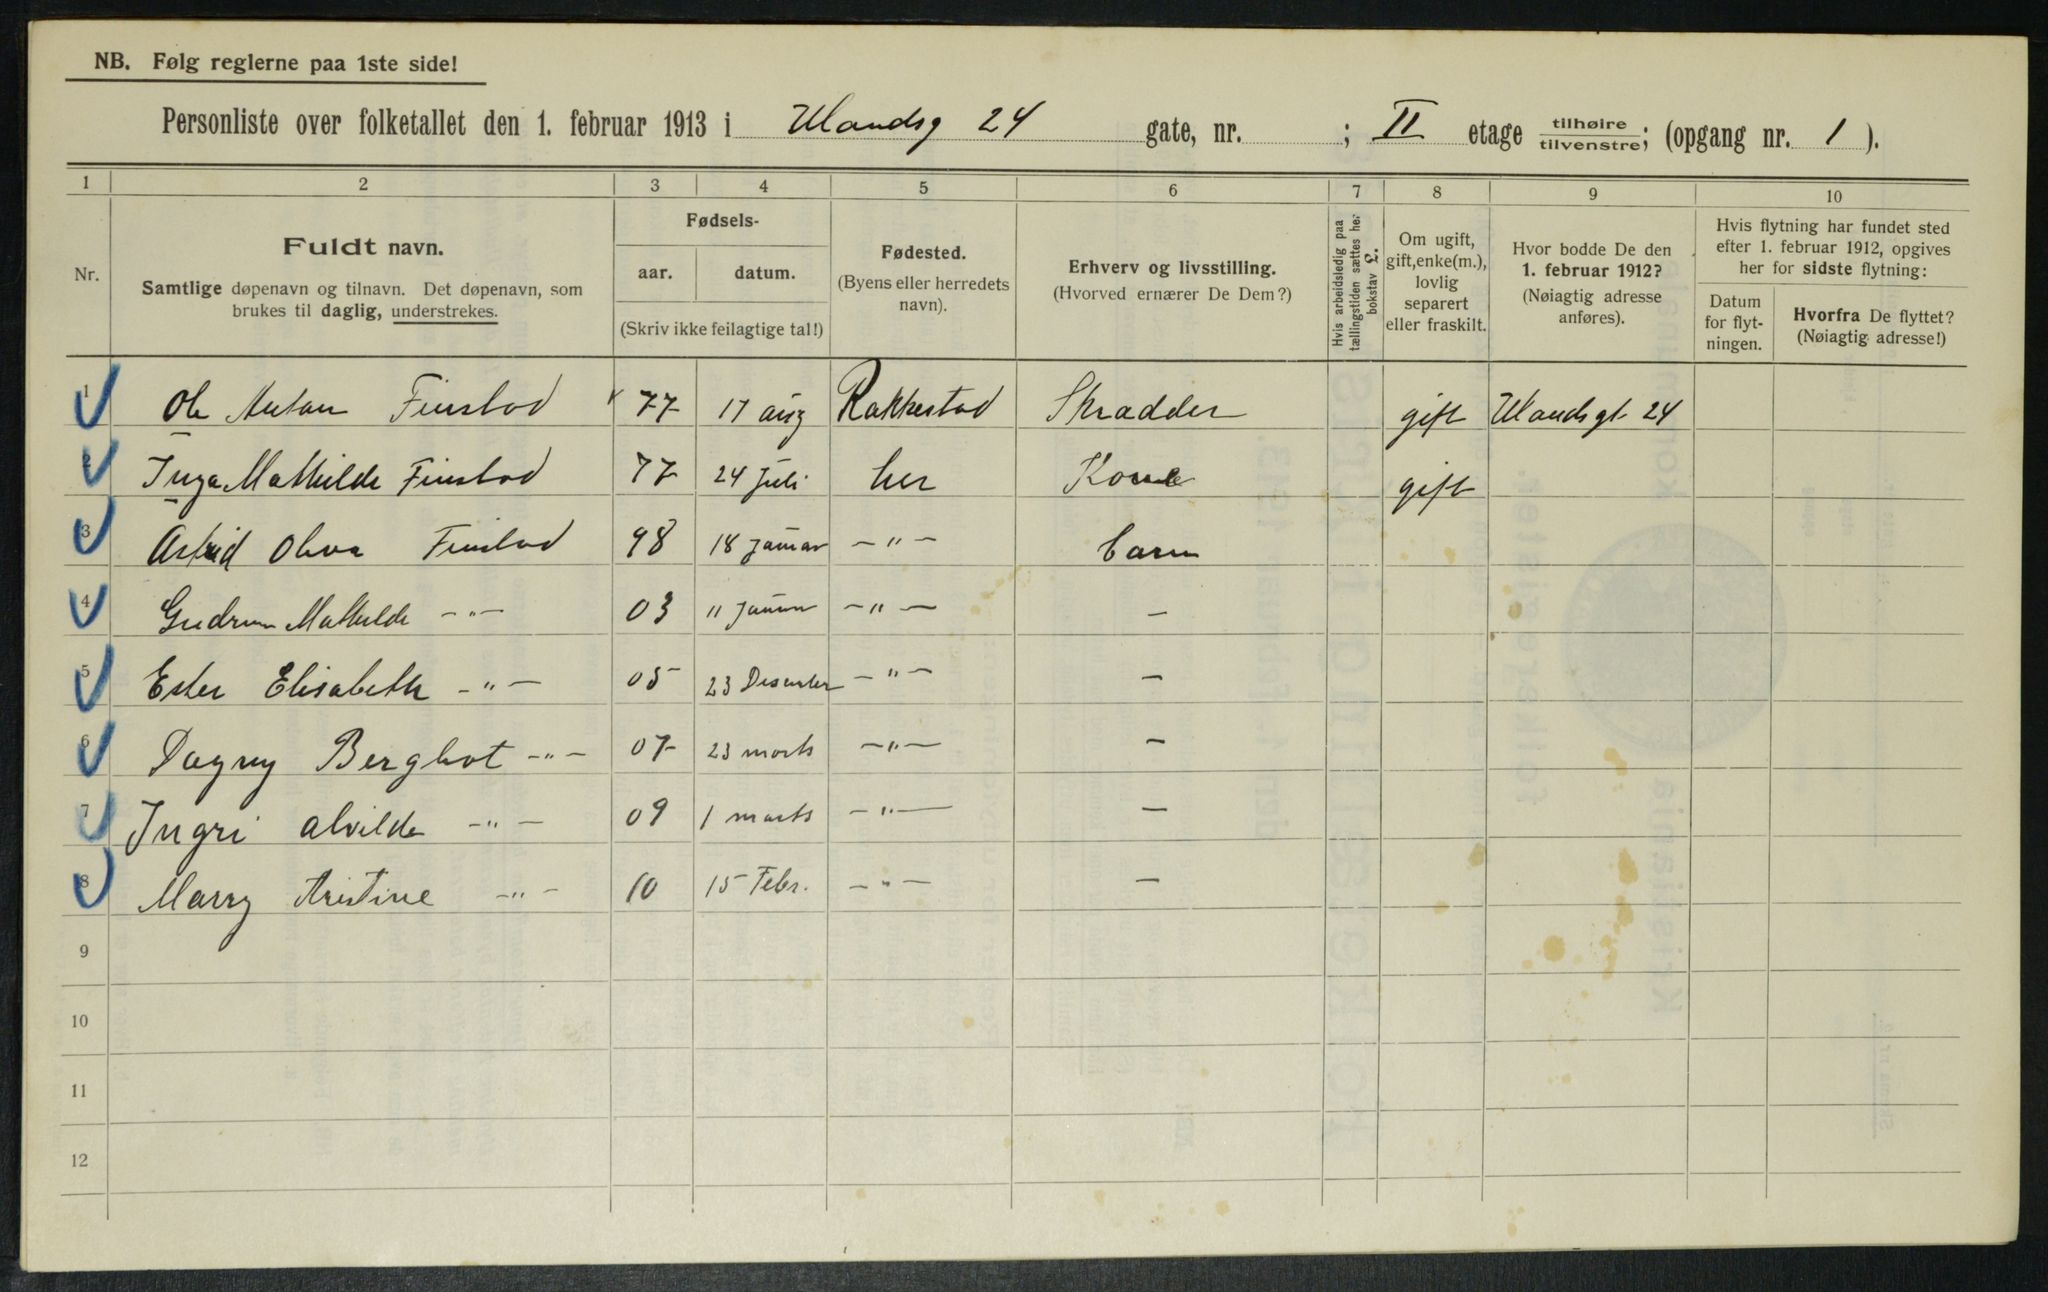 NB. Følg reglerne paa 1ste side!
Personliste over folketallet den 1. februar 1913 i Ulandsg 24 gate, nr. ; II etage tilhøire tilvenstre; (opgang nr. 1 ).
1 2 3 4 5 6 7 8 9 10
Nr.
Fuldt navn.
Samtlige døpenavn og tilnavn. Det døpenavn, som
brukes til daglig, understrekes.
Fødsels-
aar. datum.
(Skriv ikke feilagtige tal!)
Fødested.
(Byens eller herredets
navn).
Erhverv og livsstilling.
(Hvorved ernærer De Dem?)
Hvis arbeidsledig paa
tællingstiden sættes her
bokstav L.
Om ugift,
gift, enke(m.),
lovlig
separert
eller fraskilt.
Hvor bodde De den
1. februar 1912?
(Nøiagtig adresse
anføres).
Hvis flytning har fundet sted
efter 1. februar 1912, opgives
her for sidste flytning:
Datum
for flyt-
ningen.
Hvorfra De flyttet?
(Nøiagtig adresse!)
1 Ole Anton Finstad 77 17 aug Rakkestad Skradder gift Ulandsgt 24
2 Inga Mathilde Finstad 77 24 Juli her Kone gift
3 Astrid Oliva Finstad 98 18 Januar – " – barn
4 Gudrun Mathilde – " – 03 11 Januar – " – –
5 Ester Elisabeth – " – 05 23 Desember – " – –
6 Dagny Berghot – " – 07 23 marts – " – –
7 Ingri Alvilde – " – 09 1 marts – " – –
8 Marry Kristine – " – 10 15 Febr. – " – –
9
10
11
12